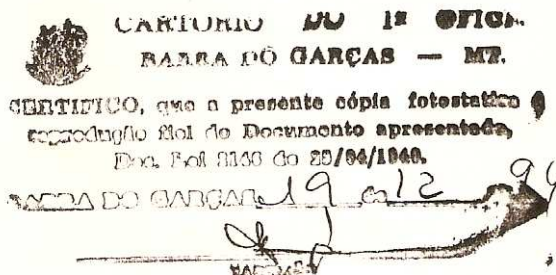 CARTORIO DO 1º OFICI
BARRA DO GARÇAS — MT.
CERTIFICO, que a presente cópia fotostatica é
reprodução fiel do Documento apresentado,
Dec. Lei 2148 de 25/04/1940.
BARRA DO GARÇAS 19 de 12 99